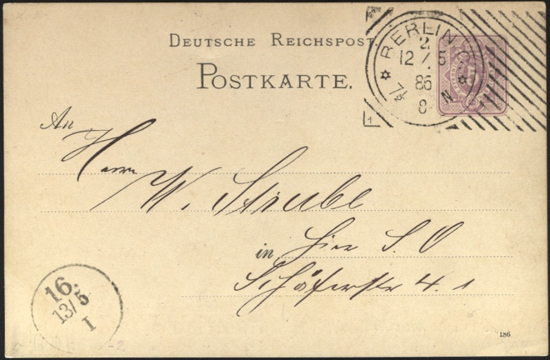 DEUTSCHE REICHSPOST.
POSTKARTE.
BERLIN
12/5
86
7½ 8 N
1
An
Herrn
W. Straube
in Hier S. O
Schäferstr 4. I
16.
13/5
I
186